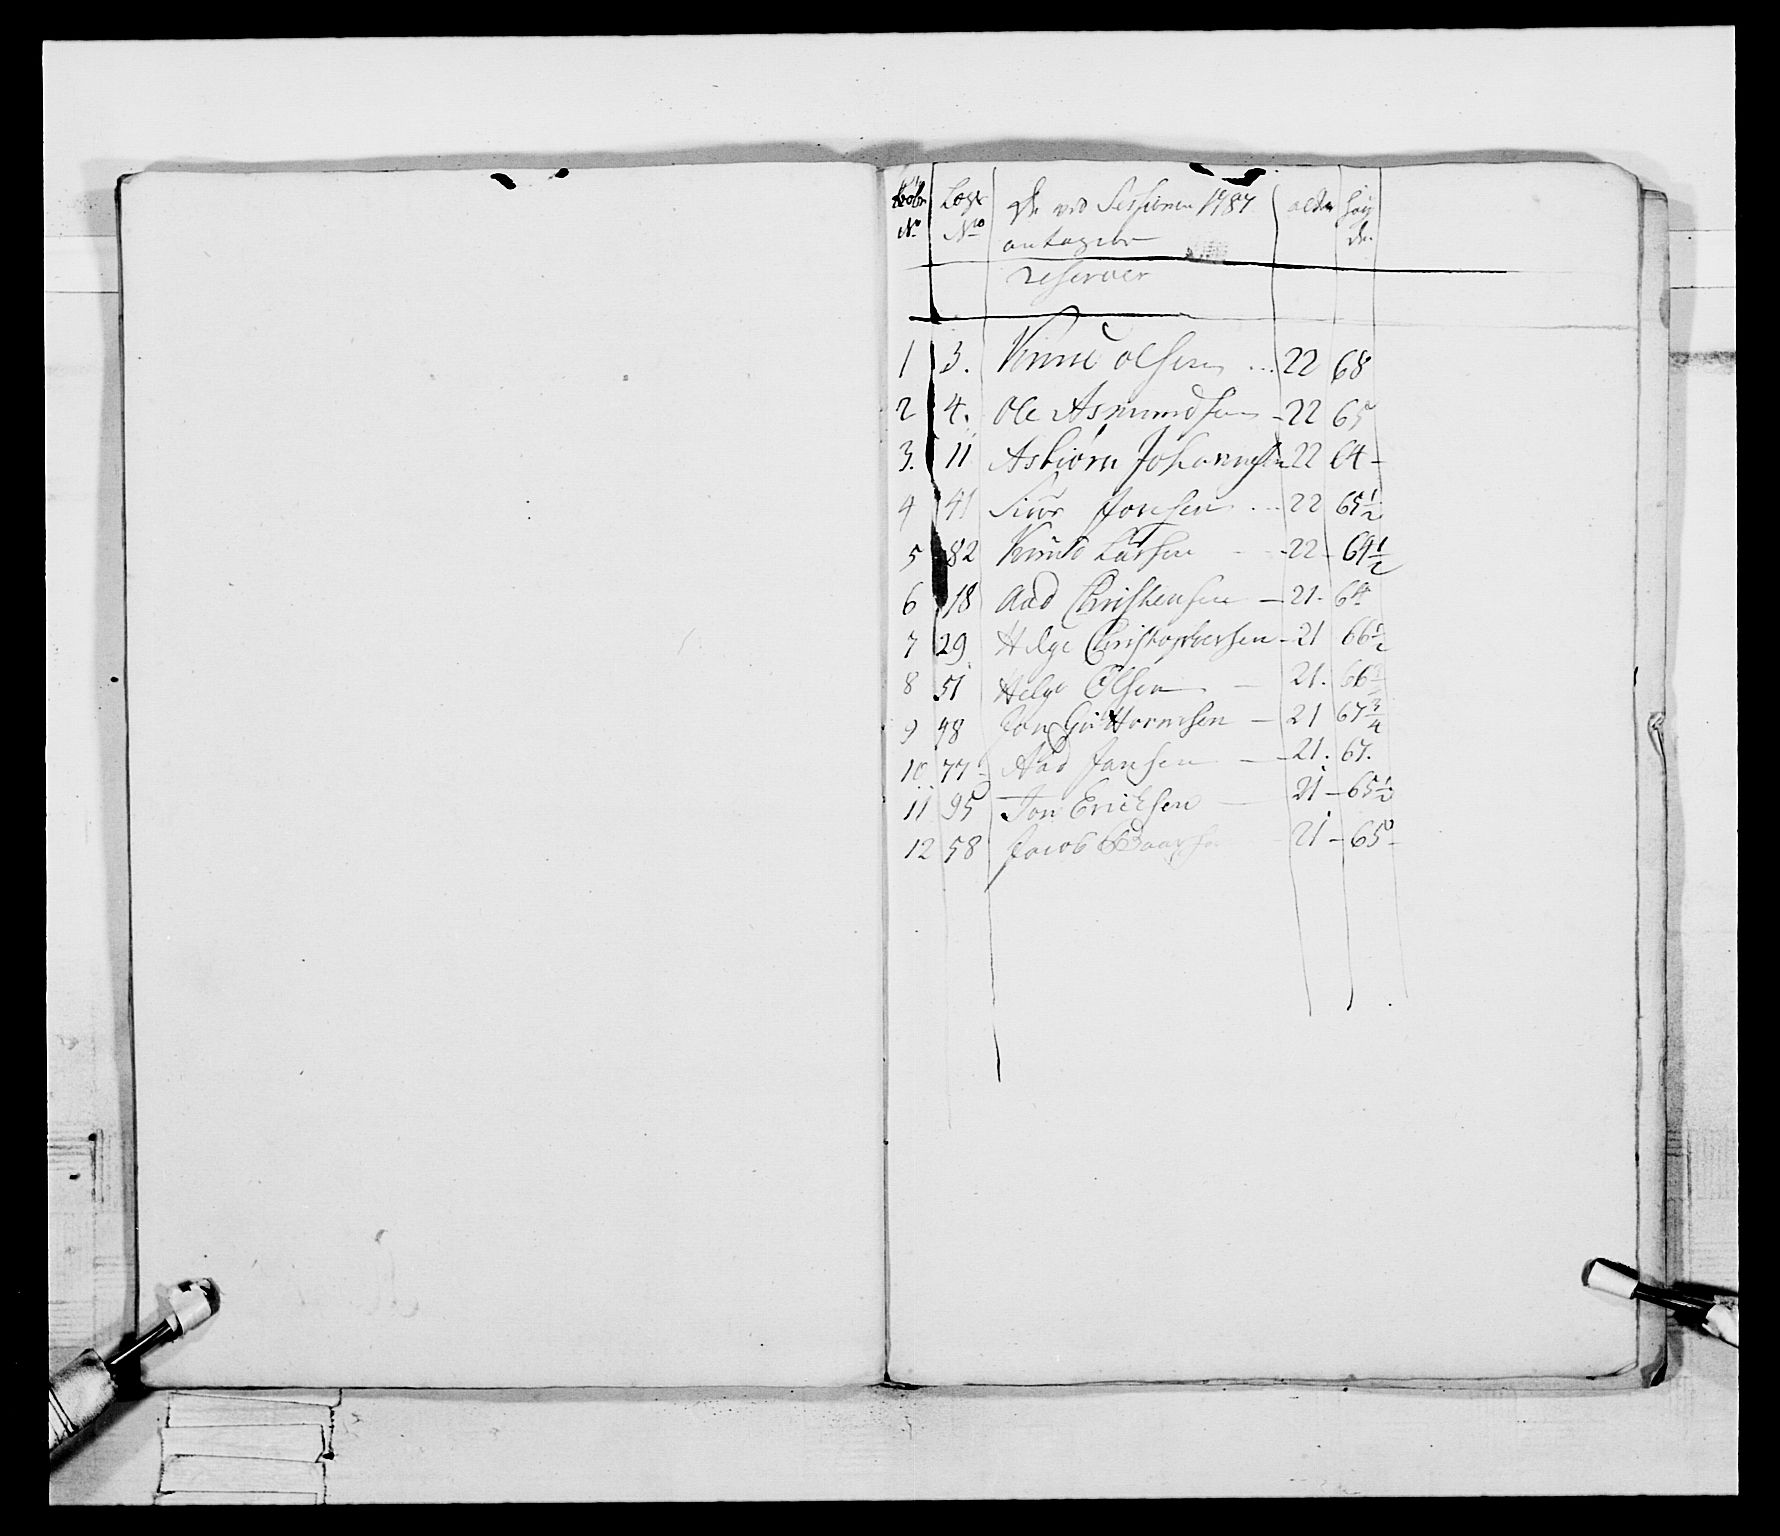 Løbe No Legs No De ved Sessionen 1787 alder høy
antagne de
reserver
1 3. Knud Olsen ... 22 68
2 4. Ole Asmundsen - 22 65
3. 11 Asbiørn Johannesen 22 64 -
4 41 Siur Jonsen ... 22 65 1/2
5 82 Knud Larsen - 22 - 64 1/2
6 18 Aad Christensen - 21. 64
7 29 Helge Christophersen - 21 66 1/2
8 51 Helge Olsen - 21. 66
9 98 Jon Guttormsen - 21 67 3/4
10 77 Aad Jansen - 21. 67.
11 95 Jon Ericksen - 21 - 65 1/2
12 58 Jacob 21 - 65 -